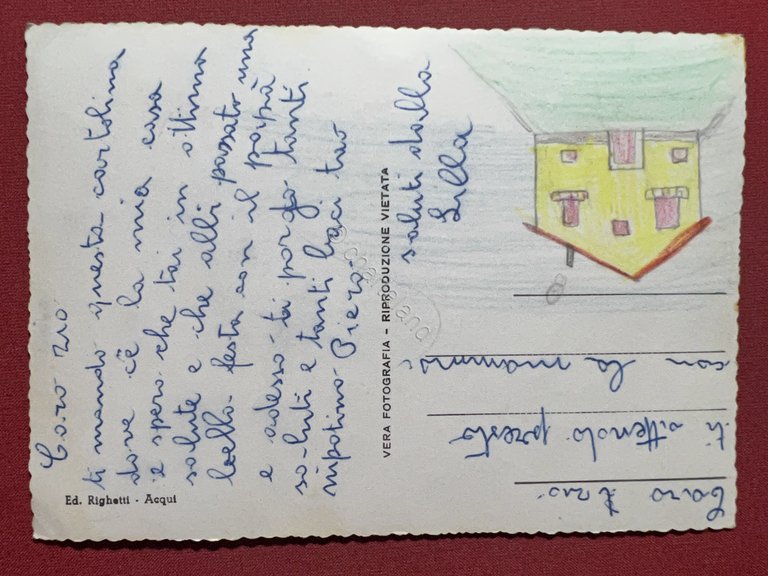 Caro zio
ti mando questa cartolina
dove c'è la mia casa
e spero che tai in ottima
salute e che alli passato una
bella festa con il papà
e adesso ti porgo tanti
saluti e tanti baci tuo
nipotino Piero
VERA FOTOGRAFIA - RIPRODUZIONE VIETATA
saluti dalla
Lilla
Caro zio
ti attendo presto
con la mamma
Ed. Righetti - Acqui